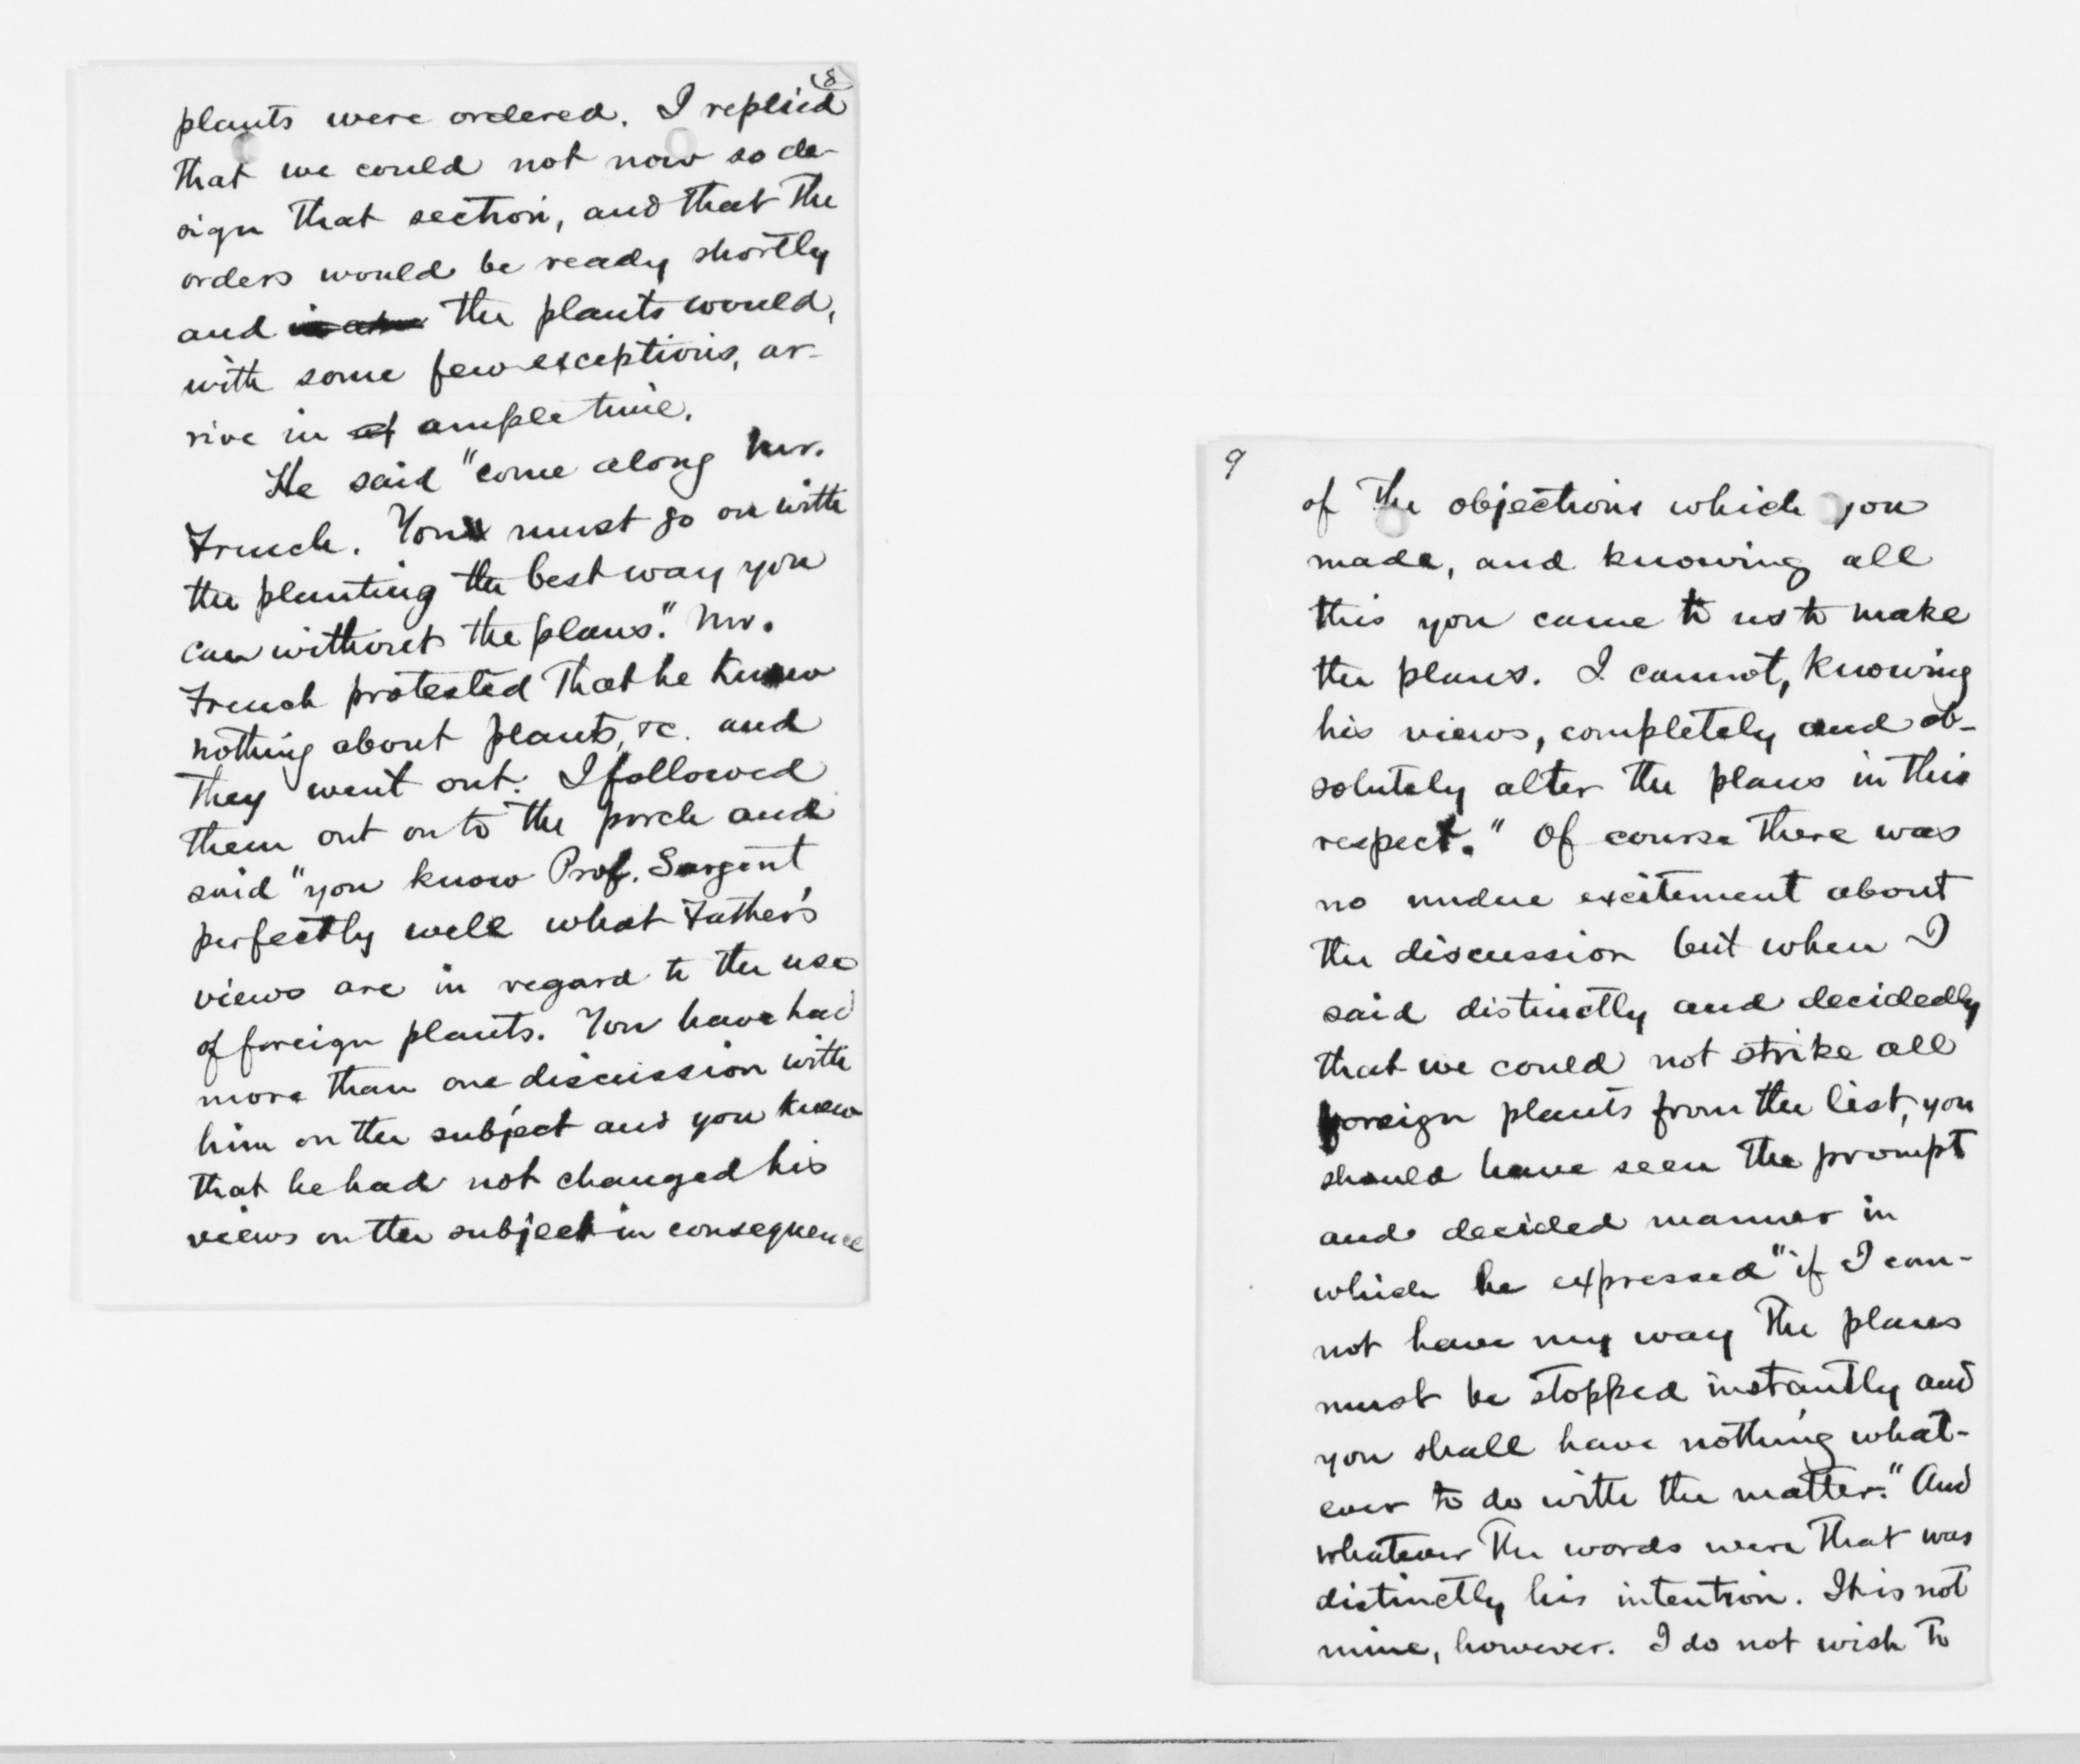 (8
plants were ordered. I replied
that we could not now so de-
sign that section, and that the
orders would be ready shortly
and the plants would,
with some few exceptions, ar-
rive in at ample time.
He said "come along Mr.
French. You must go on with
the planting the best way you
can without the plans." Mr.
French protested that he knew
nothing about plants, &c. and
they went out. I followed
them out onto the porch and
said "you know Prof. Sargent,
perfectly well what Father's
views are in regard to the use
of foreign plants. You have had
more than one discussion with
him on the subject and you knew
that he had not changed his
views on the subject in consequence
9
of the objections which you
made, and knowing all
this you came to us to make
the plans. I cannot, knowing
his views, completely and ab-
solutely alter the plans in this
respect." Of course there was
no undue excitement about
the discussion but when I
said distinctly and decidedly
that we could not strike all
foreign plants from the list, you
should have seen the prompt
and decided manner in
which he expressed "if I can-
not have my way the plans
must be stopped instantly and
you shall have nothing what-
ever to do with the matter." And
whatever the words were that was
distinctly his intention. It is not
mine, however. I do not wish to